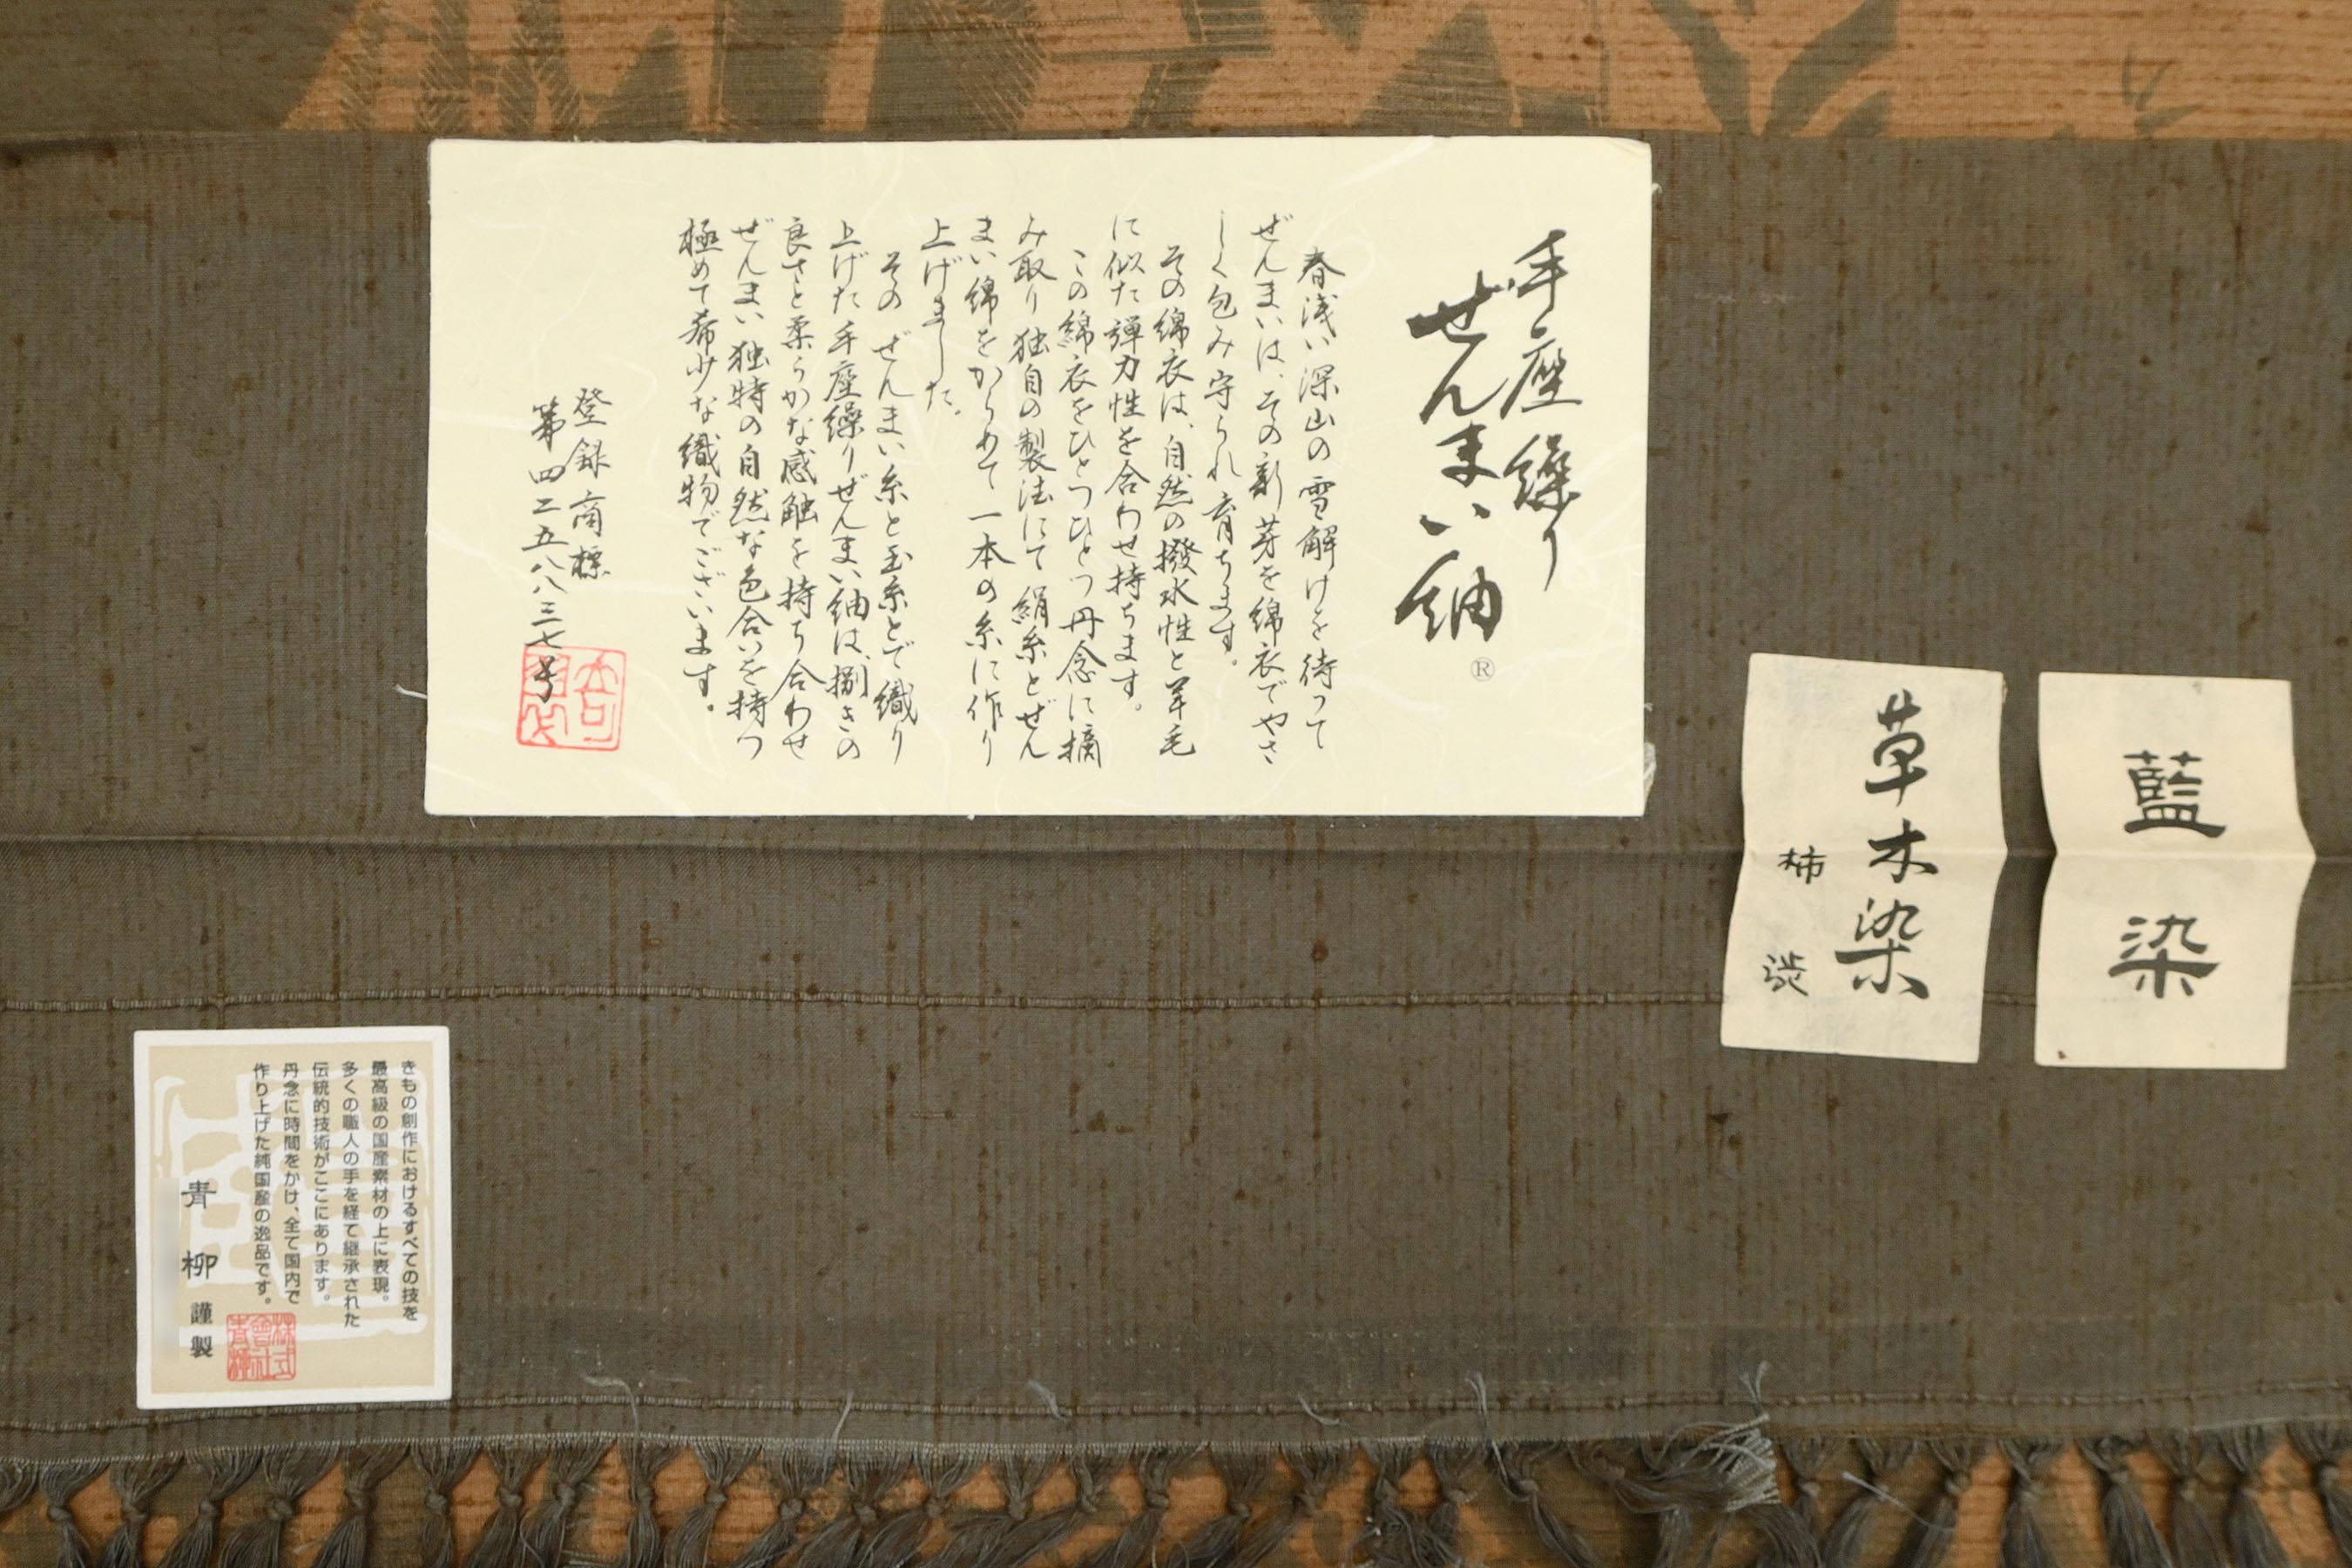 手座繰り
ぜんまい紬
®
春浅い深山の雪解けを待って
ぜんまいは、その新芽を綿衣でやさ
しく包み守られ育ちます。
その綿衣は、自然の撥水性と羊毛
に似た弾力性を合わせ持ちます。
この綿衣をひとつひとつ丹念に摘
み取り独自の製法にて絹糸とぜん
まい綿をからめて一本の糸に作り
上げました。
そのぜんまい糸と玉糸とで織り
上げた手座繰りぜんまい紬は、捌きの
良さと柔らかな感触を持ち合わせ
ぜんまい独特の自然な色合いを持つ
極めて希少な織物でございます。
登録商標
第四二五八八三七号
藍染
草木染
柿渋
きもの創作におけるすべての技を
最高級の国産素材の上に表現。
多くの職人の手を経て継承された
伝統的技術がここにあります。
丹念に時間をかけ、全て国内で
作り上げた純国産の逸品です。
青柳謹製
株式
會社
青柳